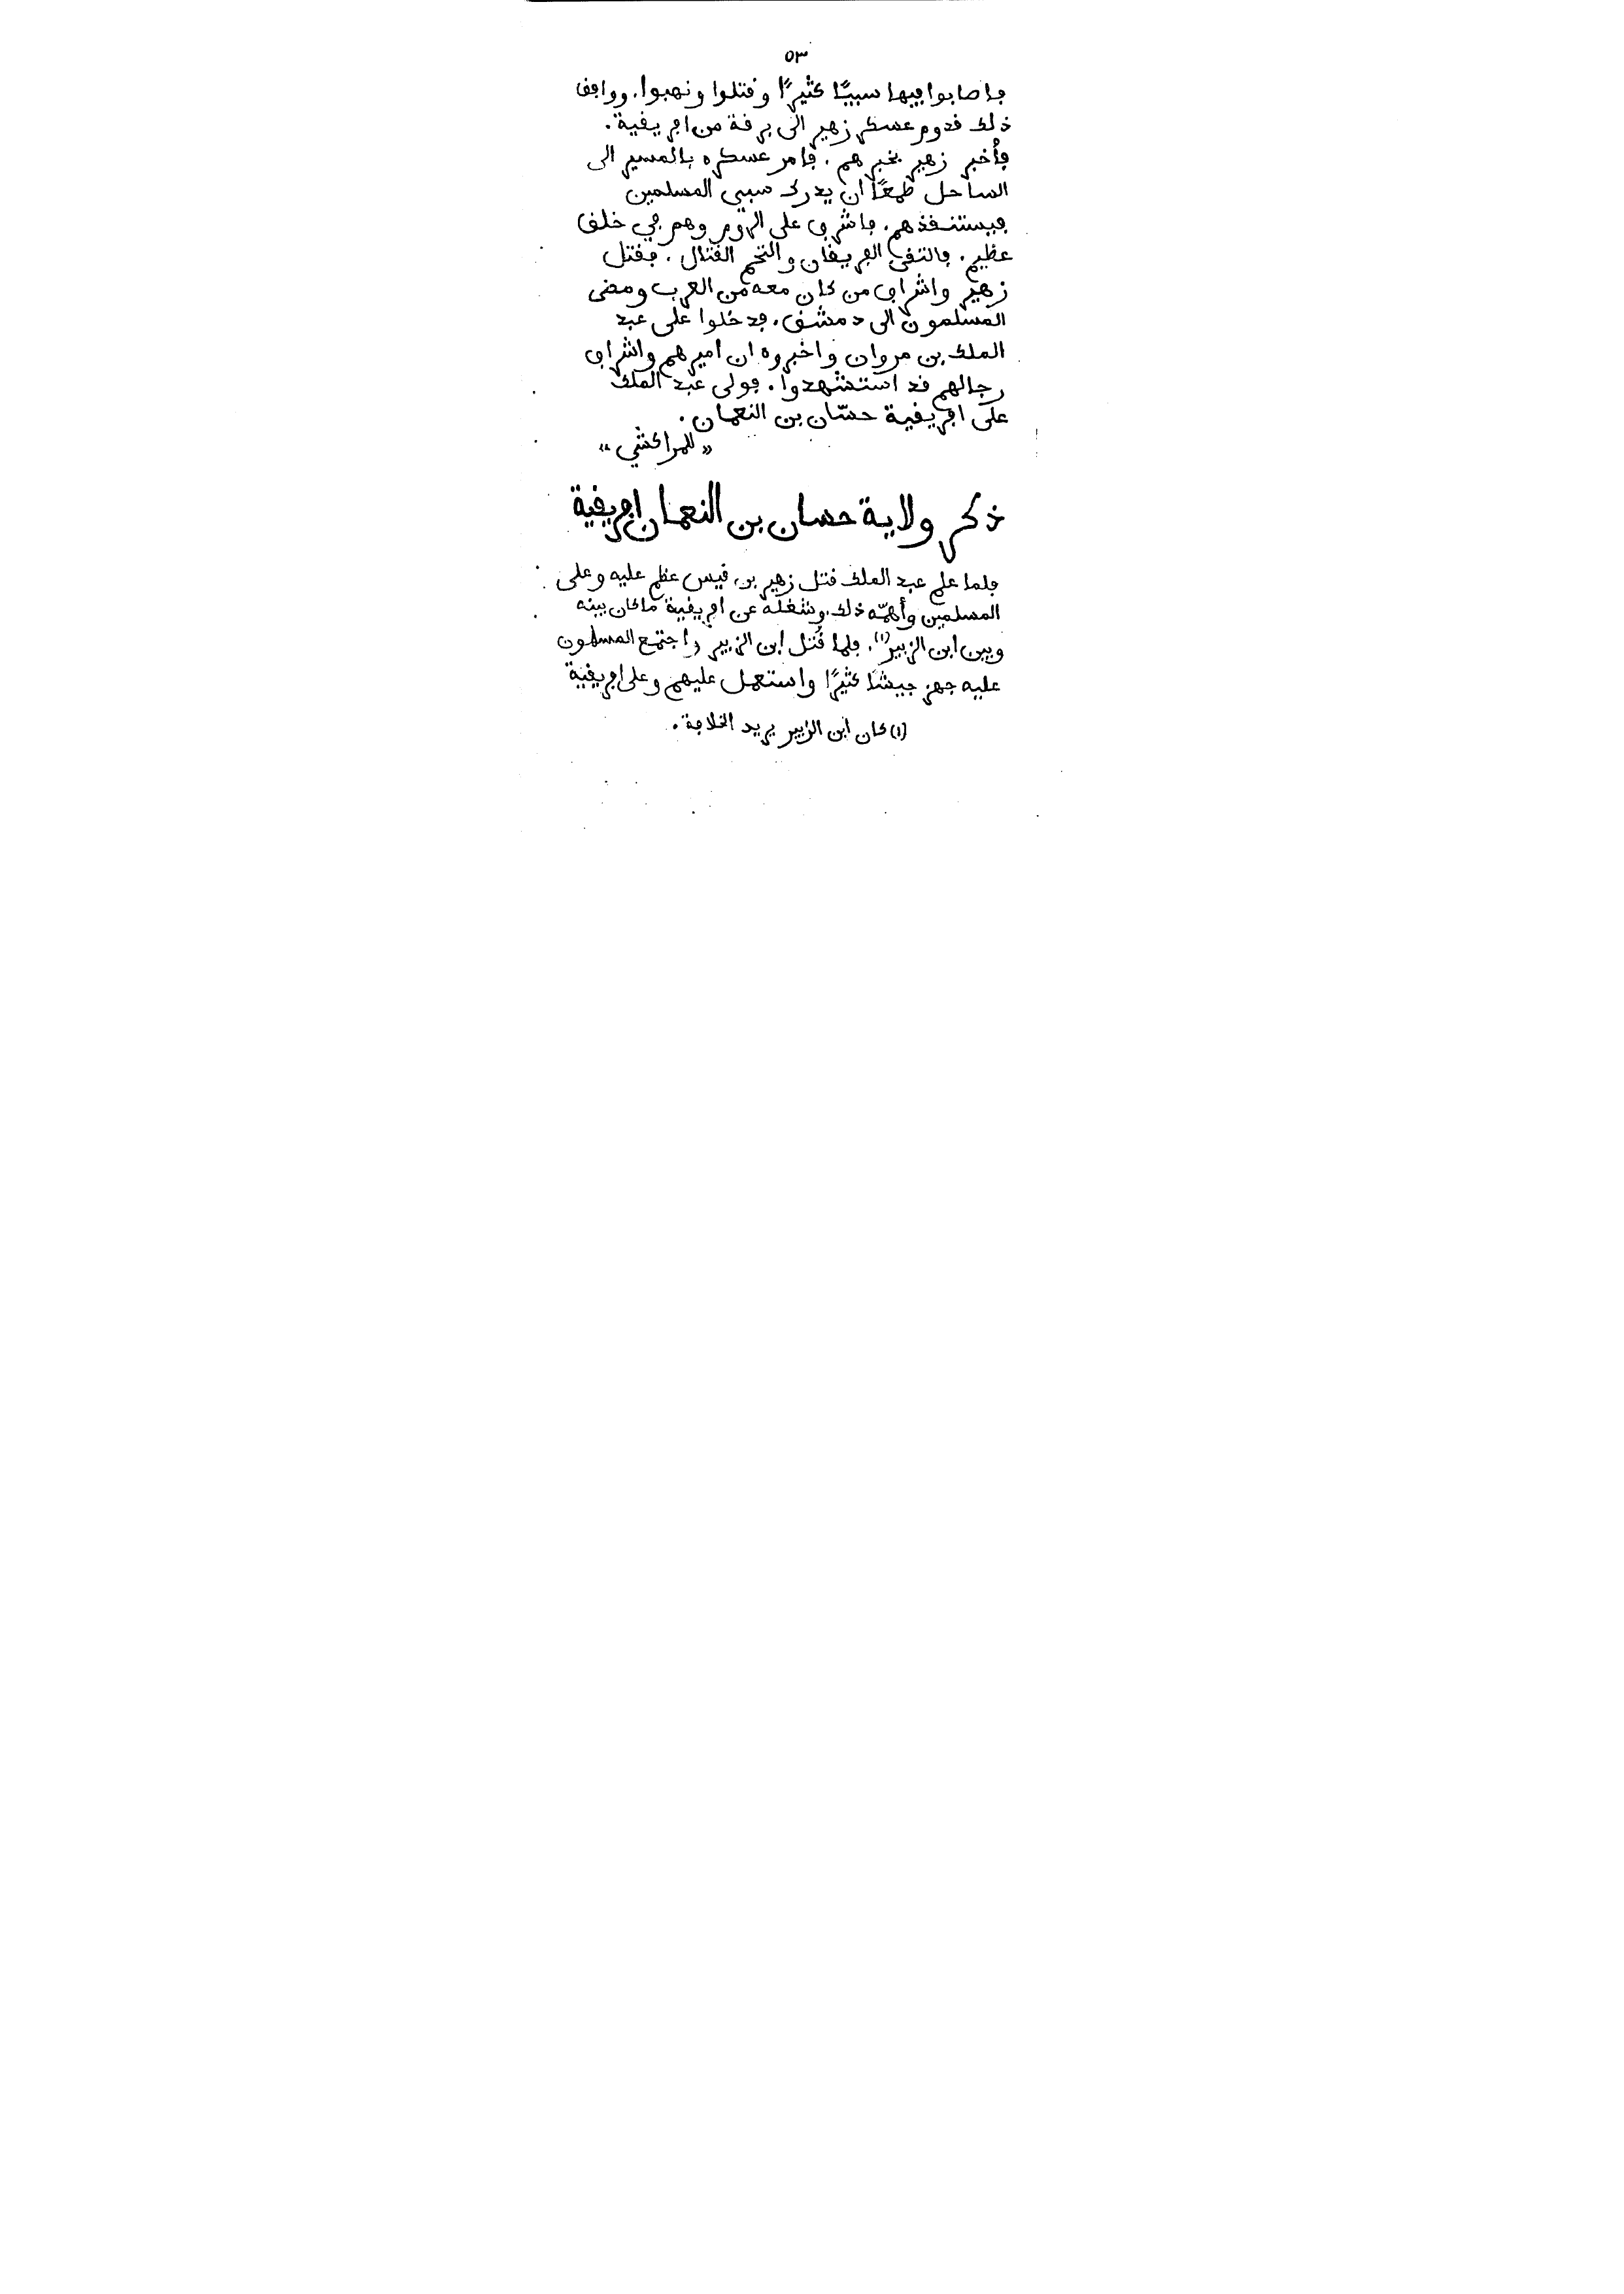 ٥٣
فاصابوا فيها سبيًا كثيرًا وقتلوا ونهبوا. ووافق
ذلك قدوم عسكر زهير الى برقة من افريقية.
فأُخبر زهير بخبرهم. فامر عسكره بالمسير الى
الساحل طمعًا ان يدرك سبي المسلمين
فيستنقذهم. فاشرف على الرّوم وهم في خلق
عظيم. فالتقى الفريقان والتحم القتال. فقتل
زهير واشراف من كان معه من العرب ومضى
المسلمون الى دمشق. فدخلوا على عبد
الملك بن مروان واخبروه ان اميرهم واشراف
رجالهم قد استشهدوا. فولى عبد الملك
على افريقية حسّان بن النعمان.
«للمراكشي»
ذكر ولاية حسان بن النعمان افريقية
فلما علم عبد الملك قتل زهير بن قيس عظم عليه وعلى
المسلمين وأهمّه ذلك. وشغله عن افريقية ماكان بينه
وبين ابن الزبير(١). فلما قُتل ابن الزبير واجتمع المسلمون
عليه جهز جيشًا كثيرًا واستعمل عليهم وعلى افريقية
(١) كان ابن الزبير يريد الخلافة.